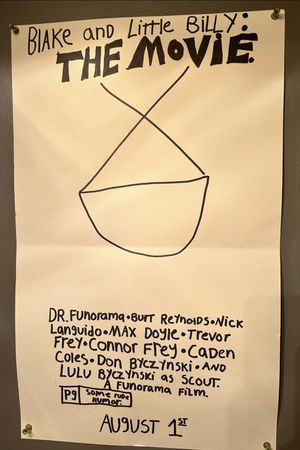 BLAKE AND LITTLE BILLY:
THE MOVIE.
DR. FUNORAMA • BURT REYNOLDS • NICK
LANGUIDO • MAX DOYLE • TREVOR
FREY • CONNOR FREY • CADEN
COLES • DON BYCZYNSKI • AND
LULU BYCZYNSKI AS SCOUT.
A FUNORAMA FILM.
PG SOME RUDE
HUMOR.
AUGUST 1ST